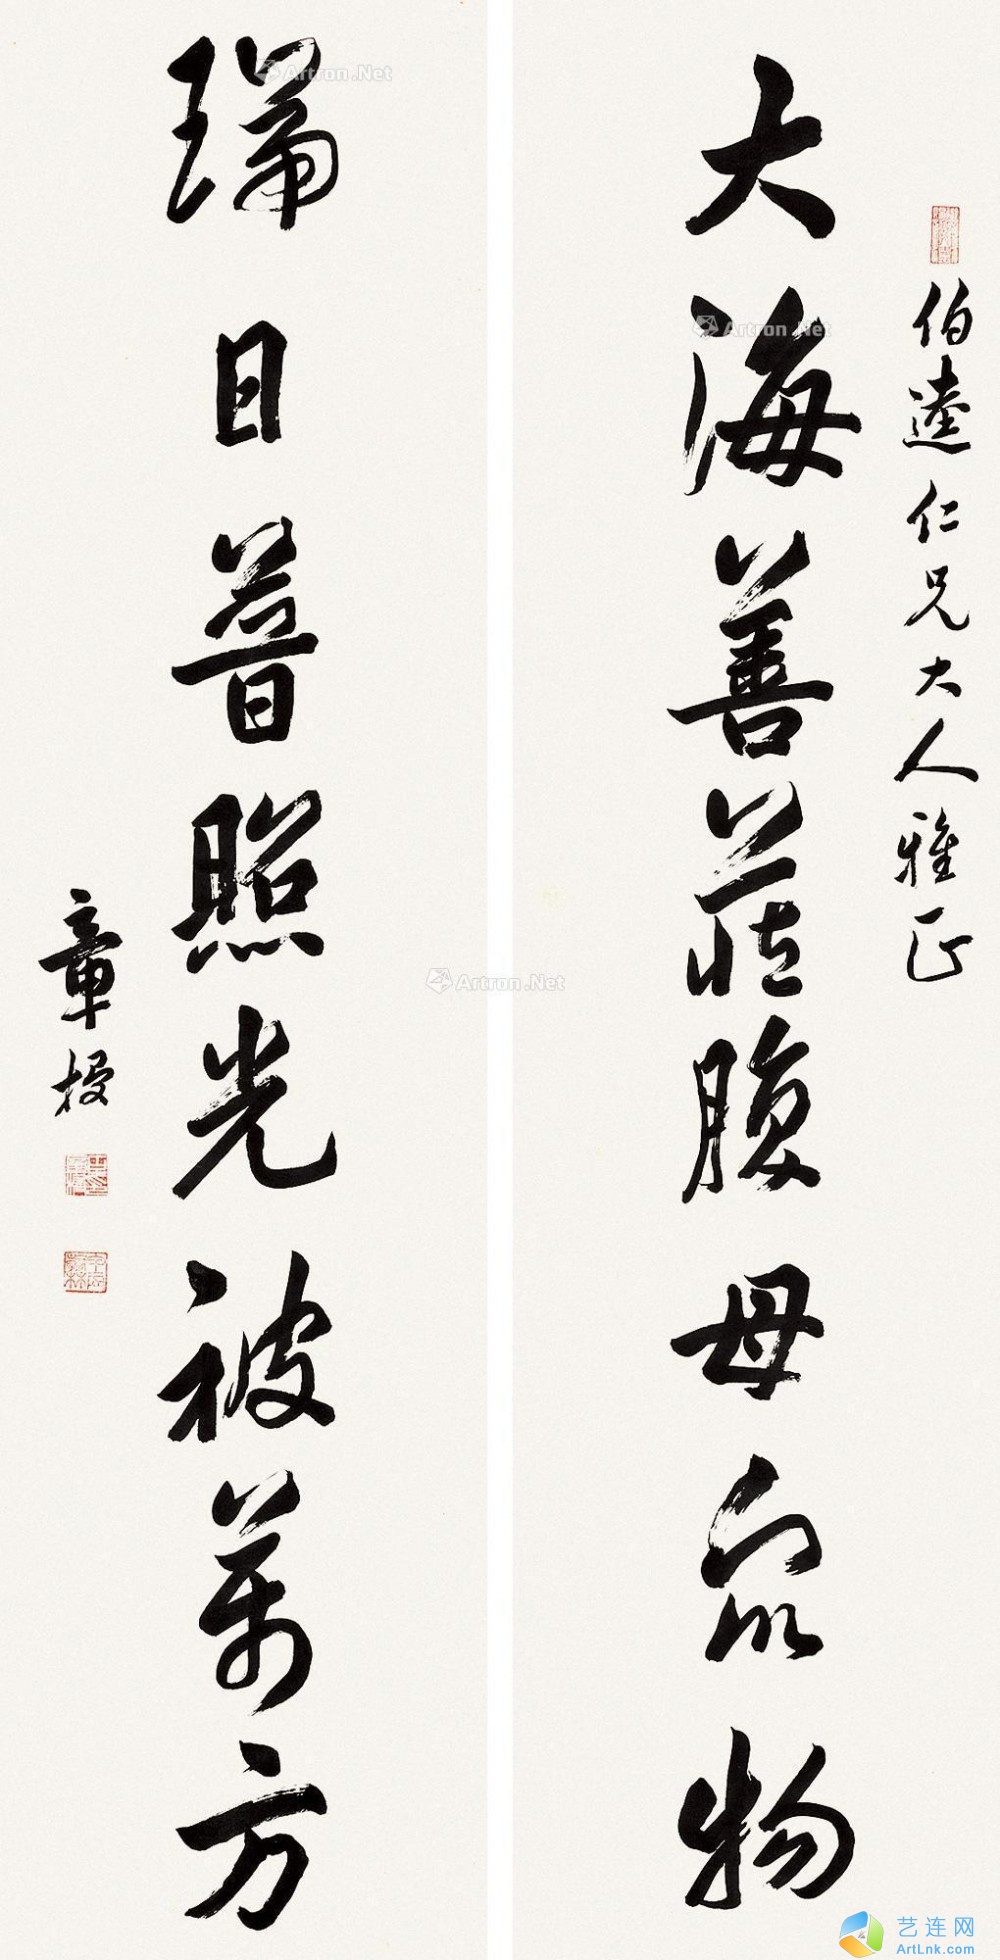 伯逵仁兄大人雅正
大海善腹母眾物
瑞日普照光被萬方
章梫
Artron.Net
Artron.Net
Artron.Net
艺连网
ArtLnk.com